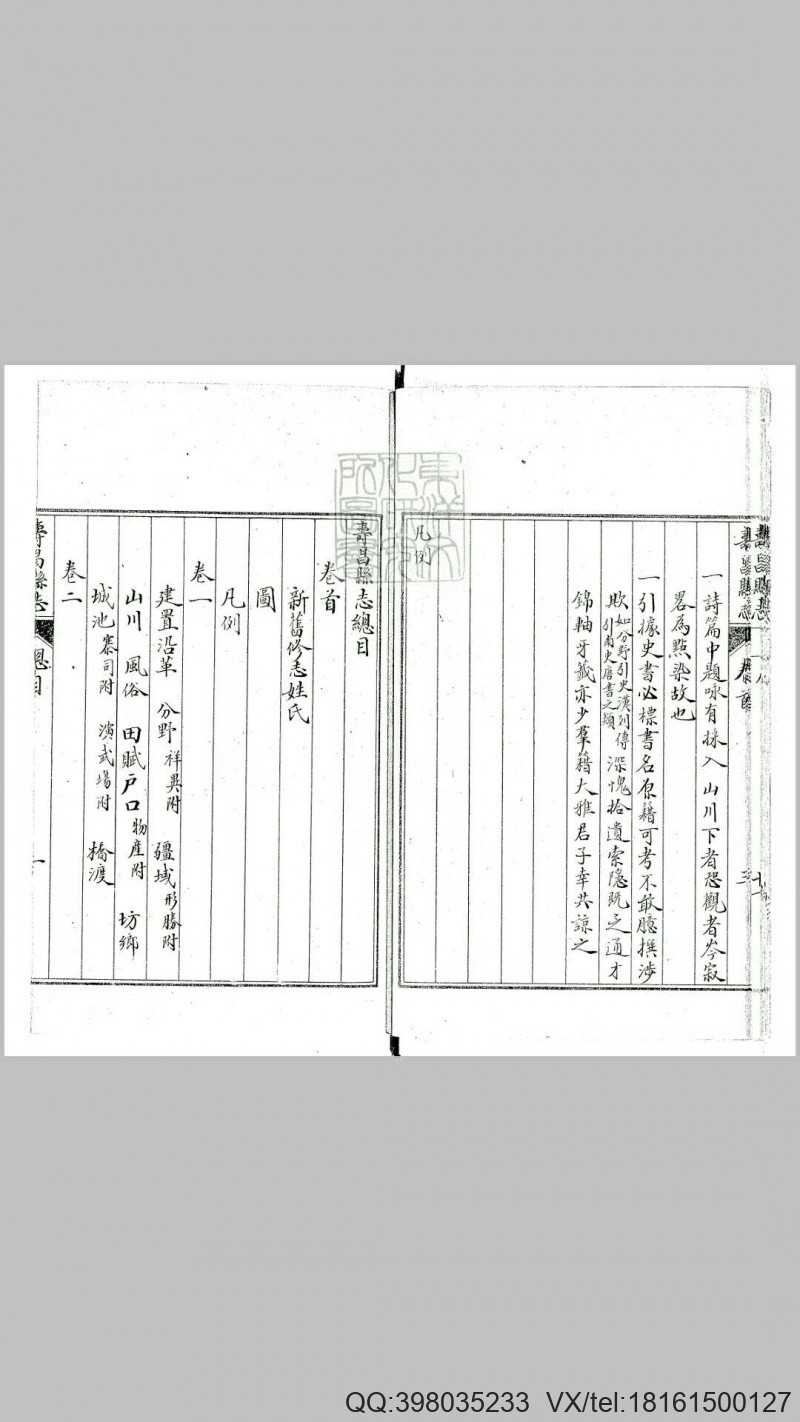 壽昌縣志
卷首
一詩篇中題咏有採入山川下者恐觀者岑寂
畧為點染故也
一引據史書必標書名原籍可考不敢臆撰涉
欺如分野引史漢列傳引南史唐書之類深愧拾遺索隱既乏通才
錦軸牙籤亦少羣籍大雅君子幸共諒之
凡例
壽昌縣志總目
卷首
新舊修志姓氏
圖
凡例
卷一
建置沿革 分野祥異附 疆域形勝附
山川 風俗 田賦戶口物產附 坊鄉
城池寨司附 演武場附 橋渡
卷二
壽昌縣志
總目
一
QQ:398035233 VX/tel:18161500127